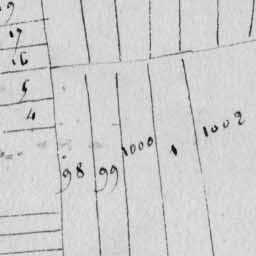 9
17
16
5
4
98 99 1000 1 1002